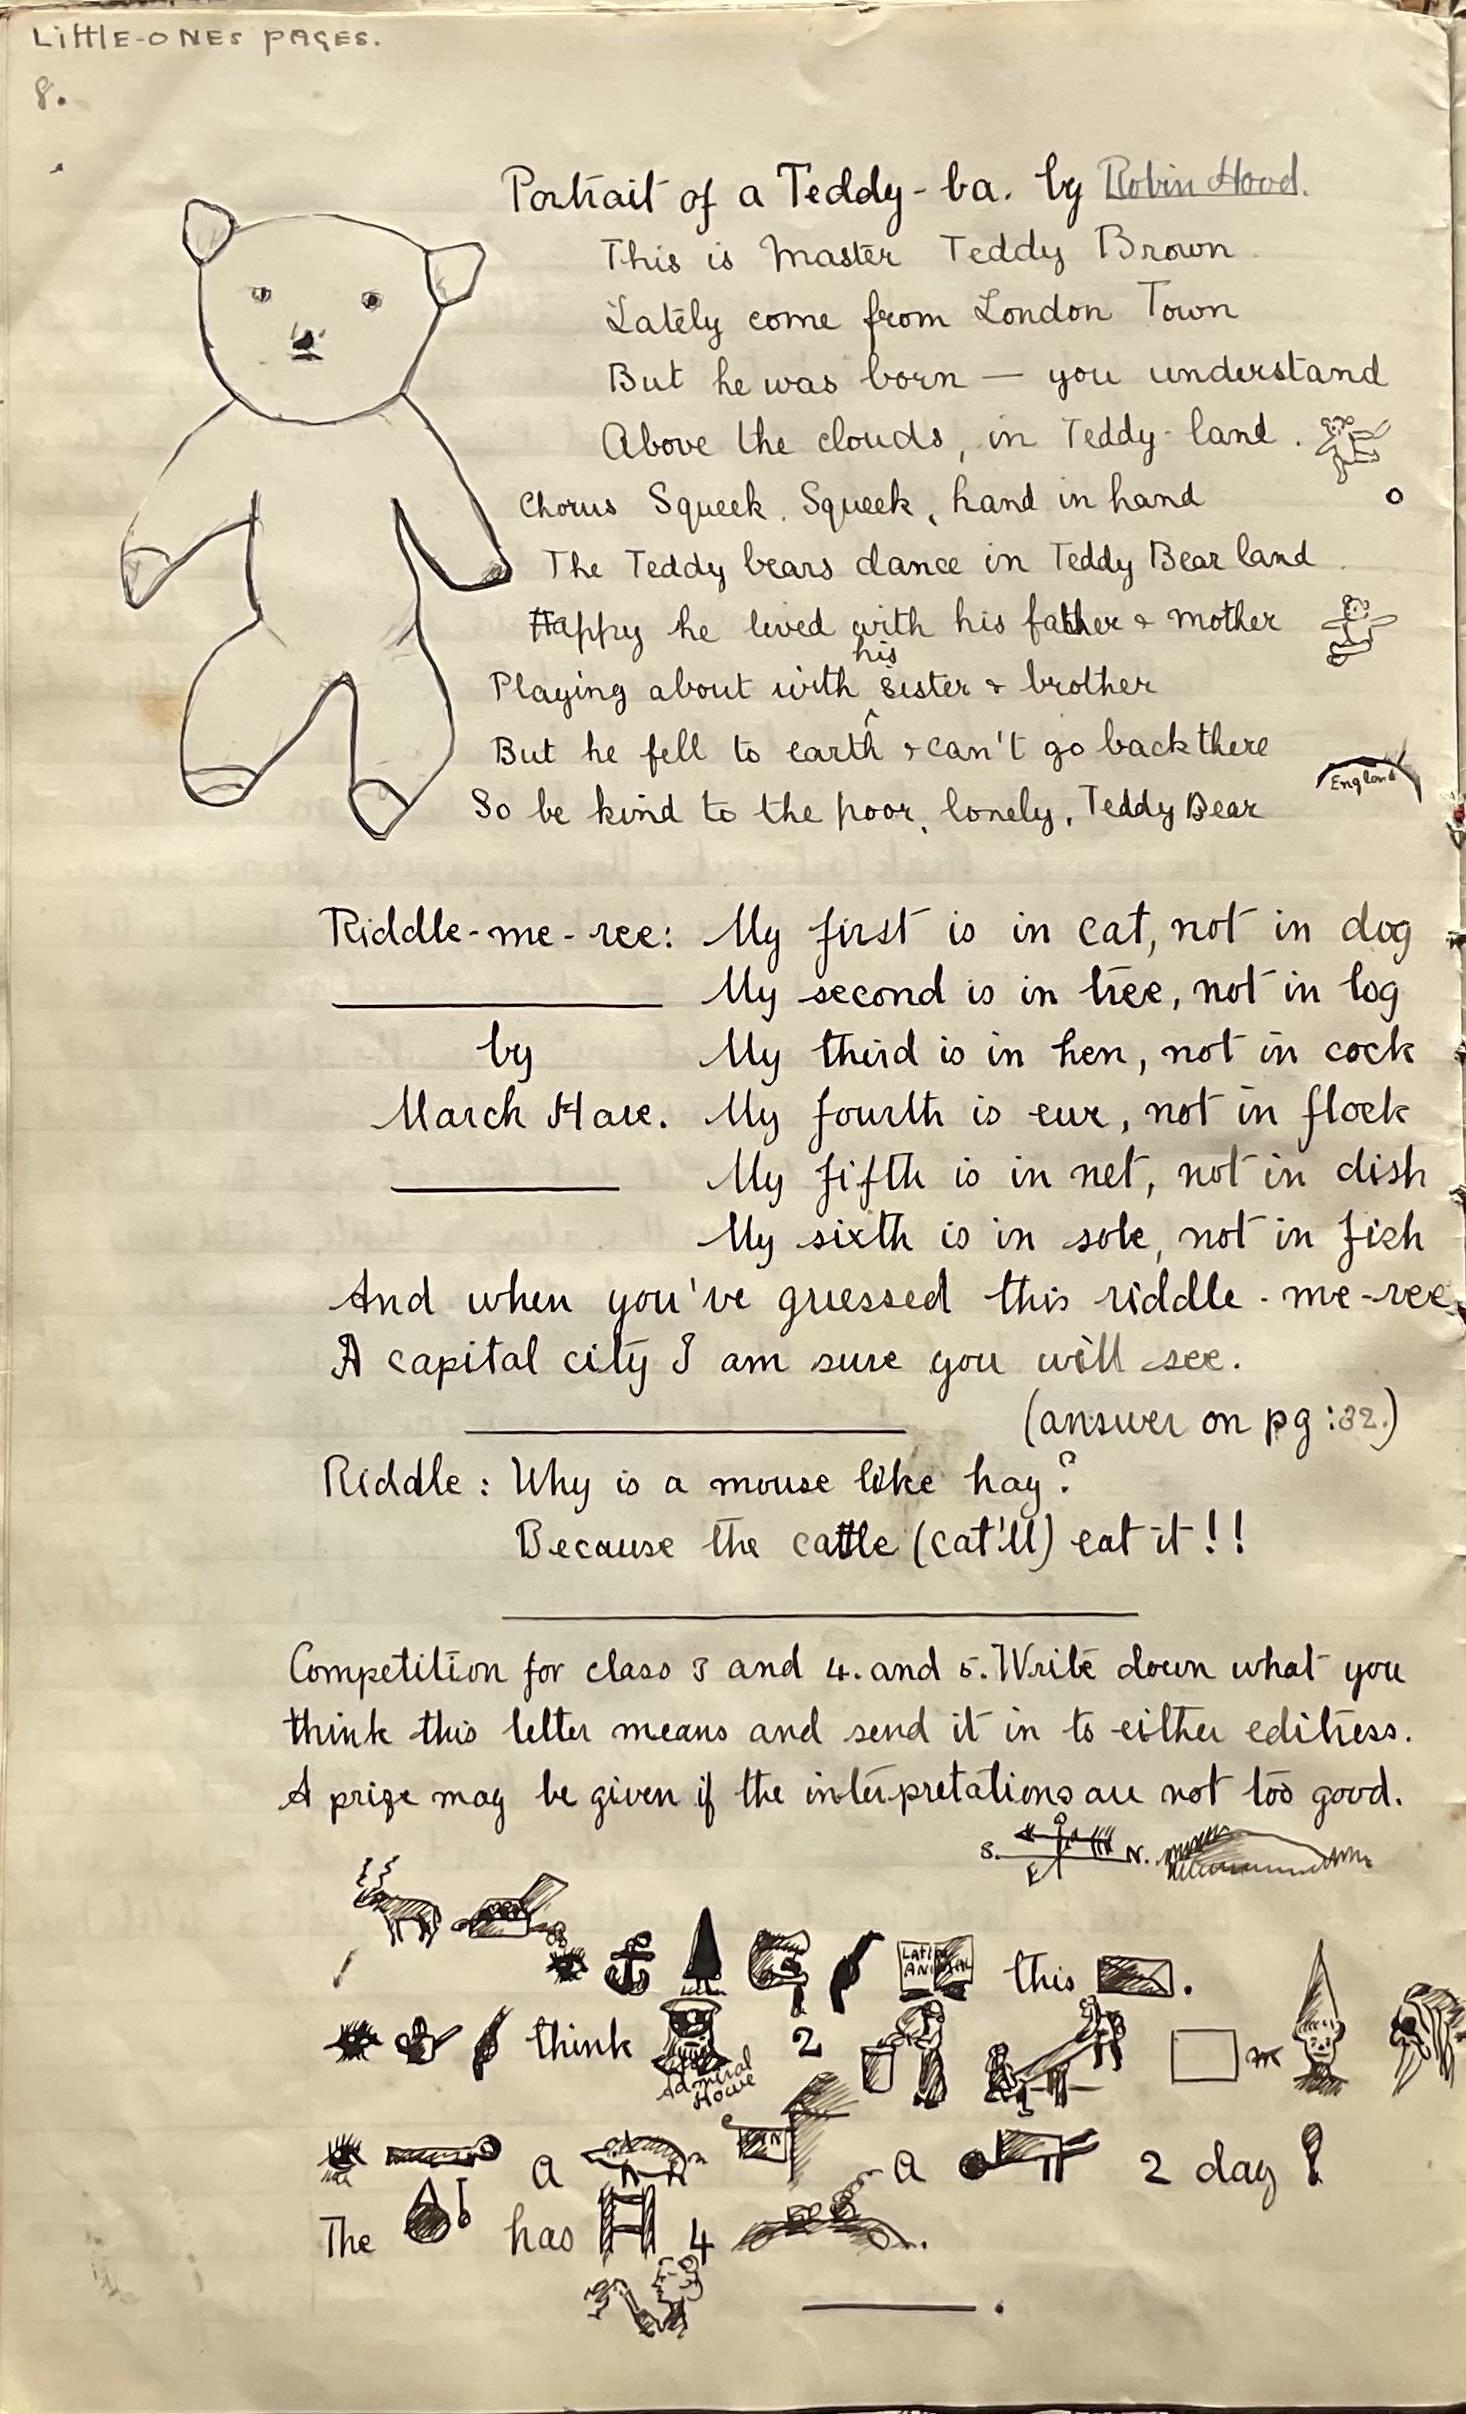 LittlE-ONEs PAGES.
8.
Portrait of a Teddy-ba. by Robin Hood.
This is Master Teddy Brown
Lately come from London Town
But he was born — you understand
Above the clouds, in Teddy-land.
Chorus Squeek. Squeek, hand in hand
The Teddy bears dance in Teddy Bear land.
Happy he lived with his father & mother
Playing about with his sister & brother
But he fell to earth & can't go back there
England
So be kind to the poor, lonely, Teddy Bear
Riddle-me-ree: My first is in cat, not in dog
My second is in tree, not in log
by My third is in hen, not in cock
March Hare. My fourth is ewe, not in flock
My fifth is in net, not in dish
My sixth is in sole, not in fish
And when you've guessed this riddle-me-ree
A capital city I am sure you will see.
(answer on pg: 32.)
Riddle: Why is a mouse like hay?
Because the cattle (cat'll) eat it!!
Competition for class 3 and 4. and 5. Write down what you
think this letter means and send it in to either editress.
A prize may be given if the interpretations are not too good.
S. N.
E
LATIN this .
think 2
Admiral Howe
a a 2 day!
The has 4 .